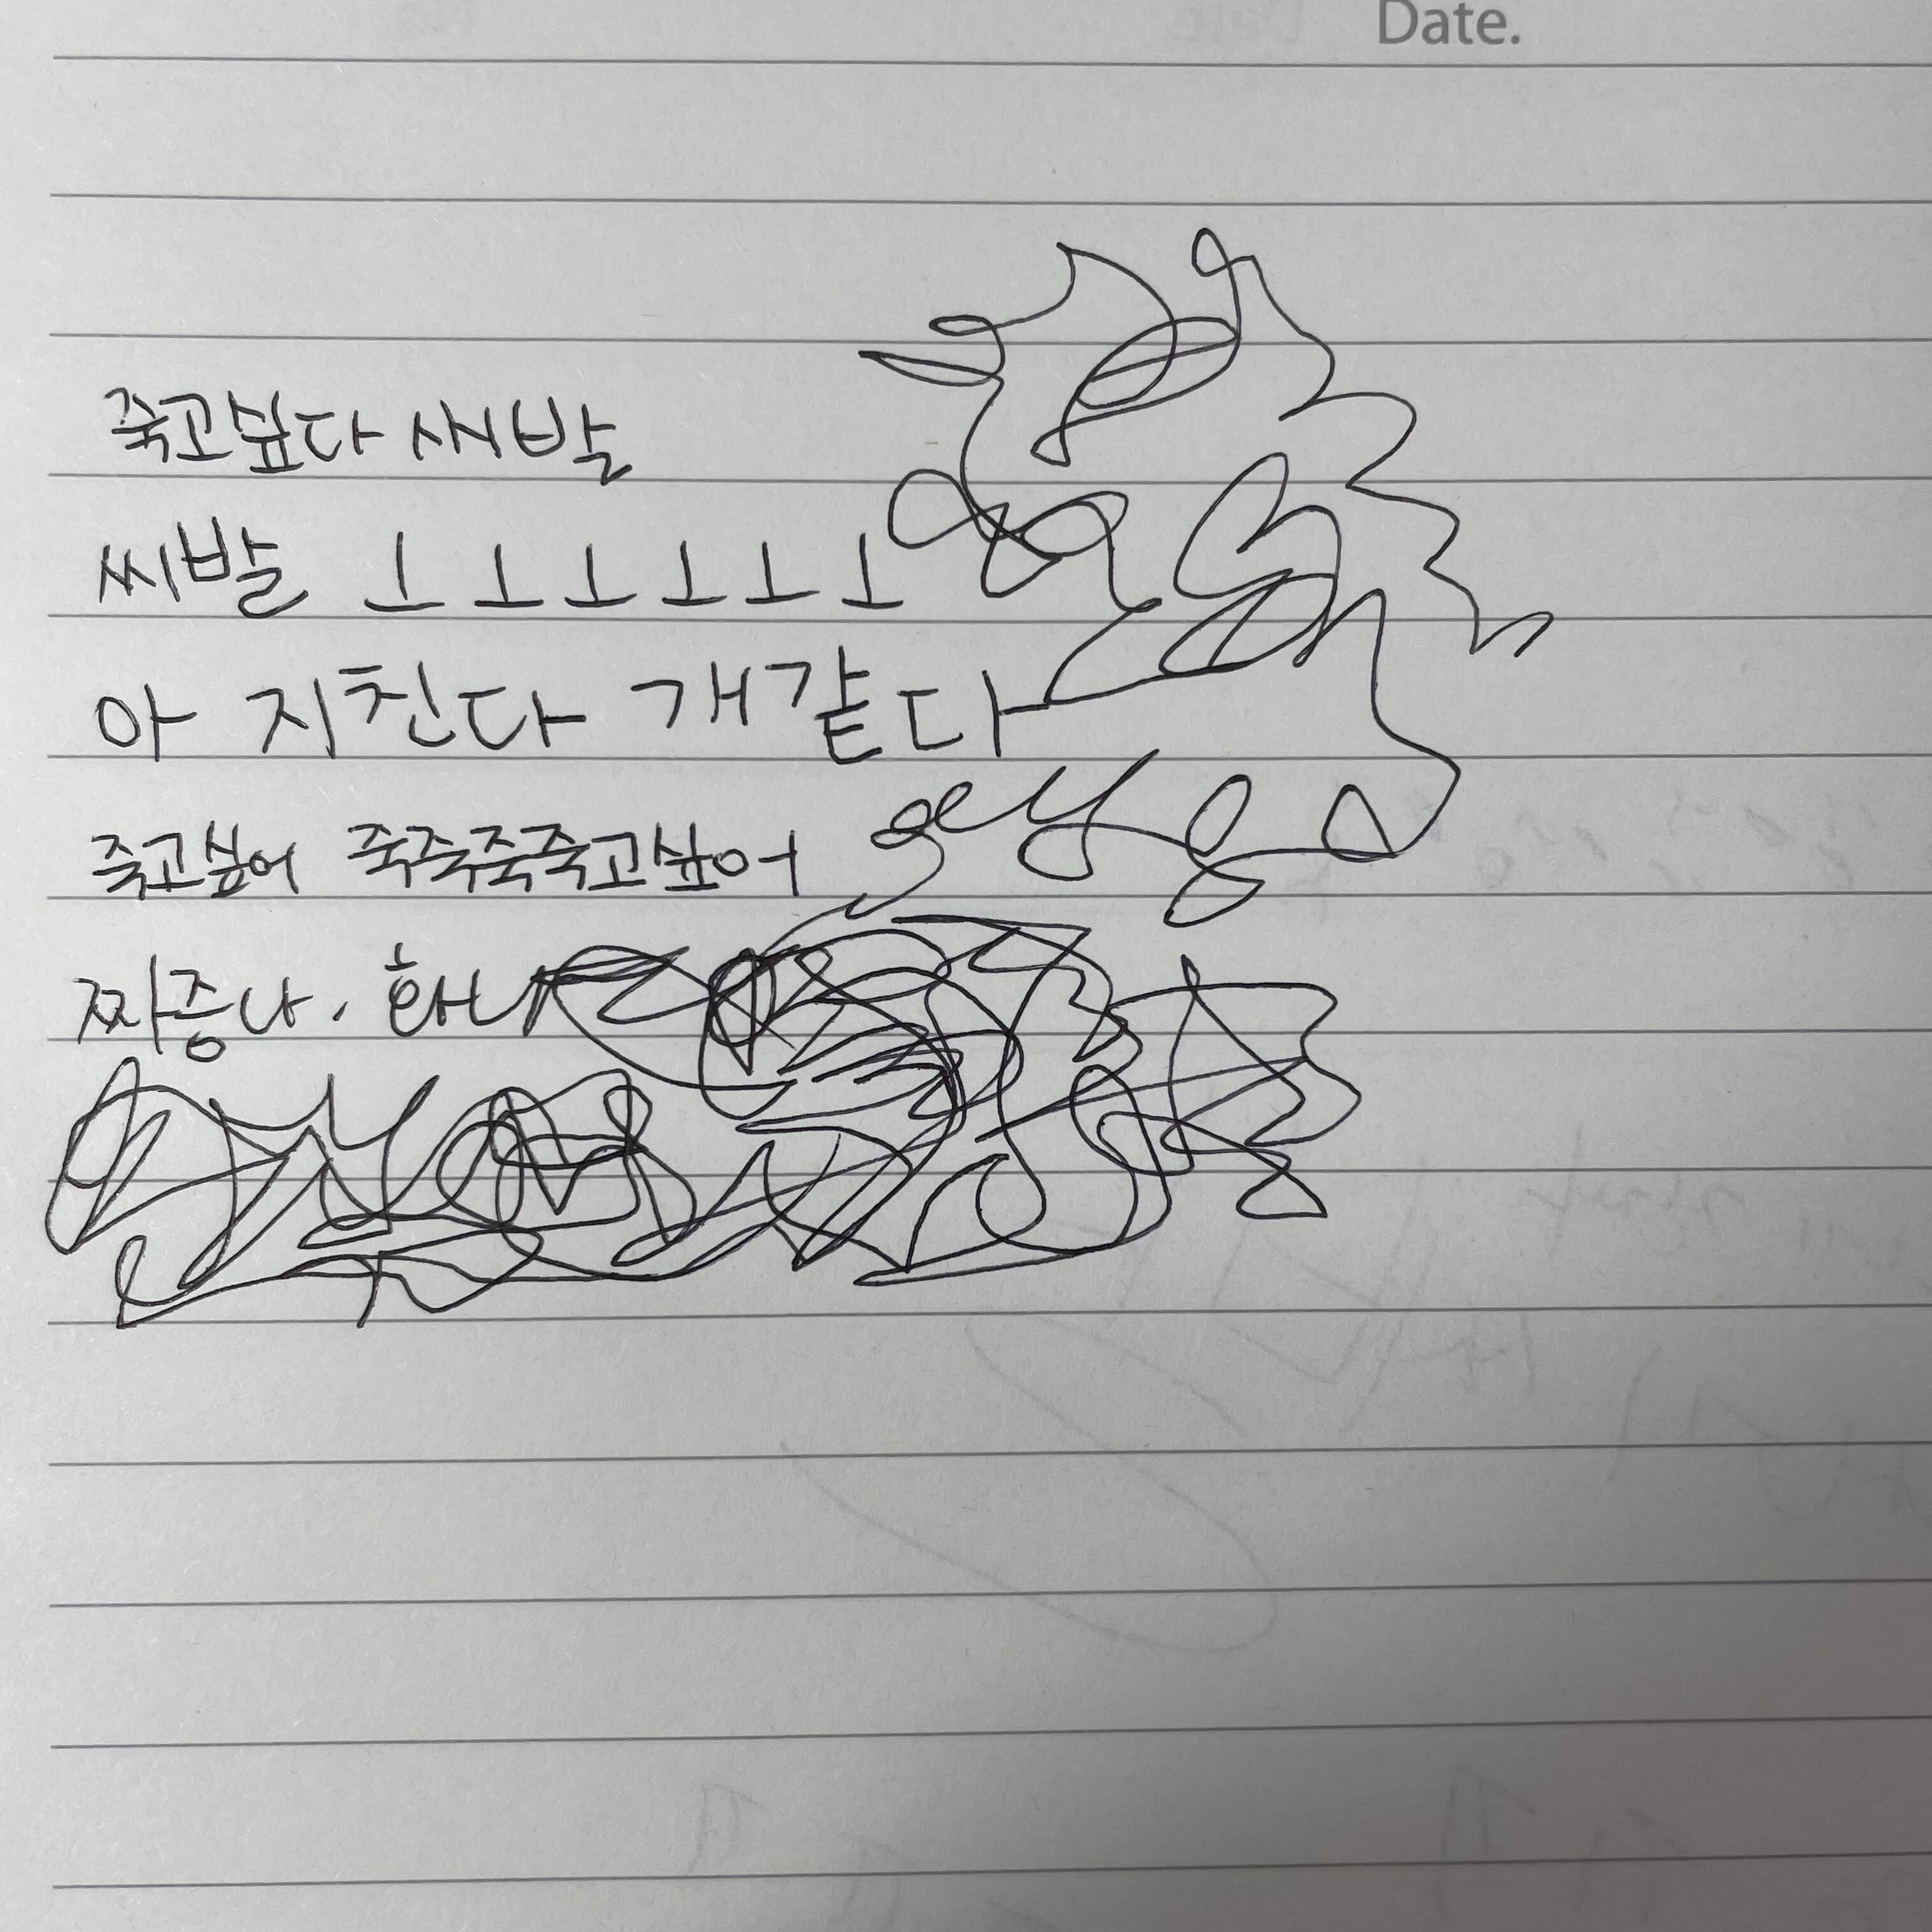 Date.
죽고싶다 쌔발
씨발 ㅗㅗㅗㅗㅗㅗ
아 지친다 개같다
죽고싶어 죽죽죽죽고싶어
짜증나. 화나